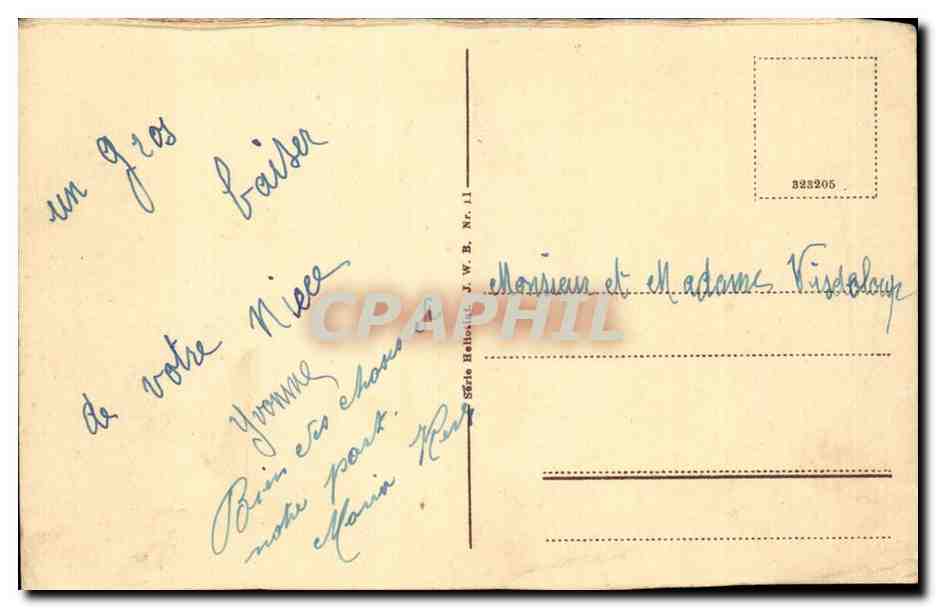 un gros
baiser
de votre Niece
Yvonne
Bien des choses de
notre part.
Maria
Série Heliocolor J. W. B. Nr. 11
323205
Monsieur et Madame Visdeloup
CPAPHIL